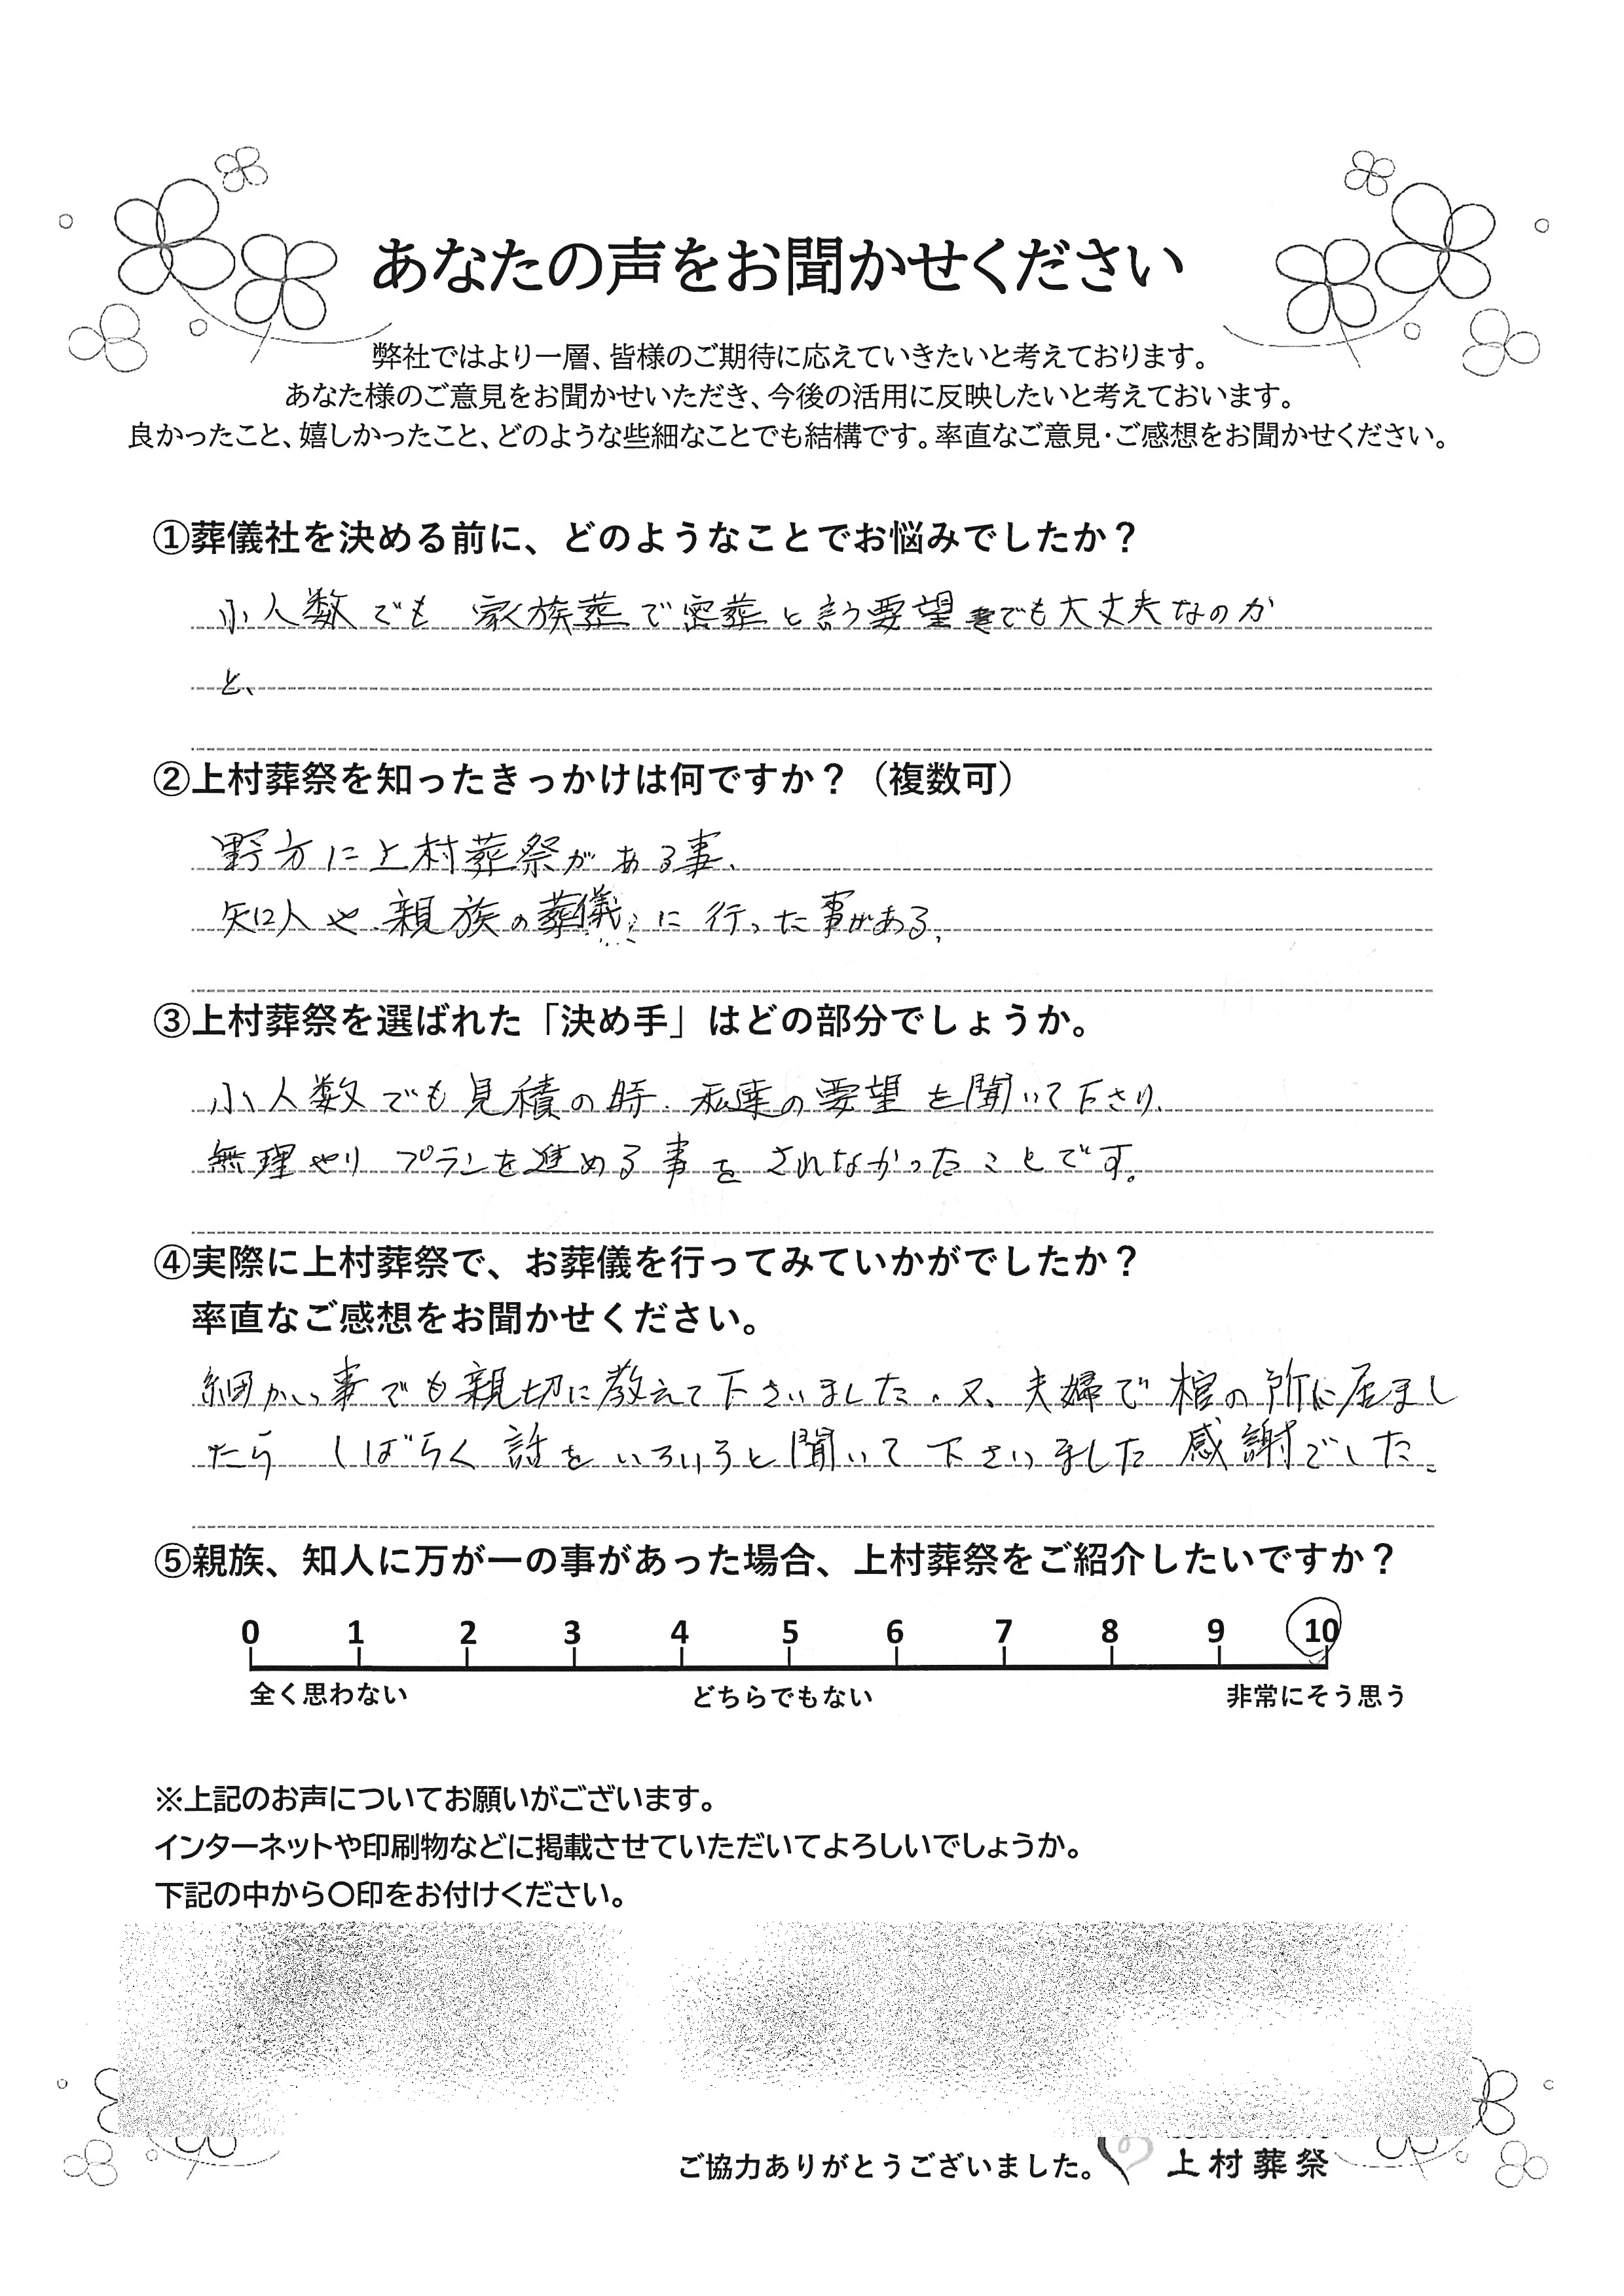 あなたの声をお聞かせください
弊社ではより一層、皆様のご期待に応えていきたいと考えております。
あなた様のご意見をお聞かせいただき、今後の活用に反映したいと考えておいます。
良かったこと、嬉しかったこと、どのような些細なことでも結構です。率直なご意見・ご感想をお聞かせください。
①葬儀社を決める前に、どのようなことでお悩みでしたか？
小人数でも 家族葬で密葬と言う要望でも大丈夫なのか
と、
②上村葬祭を知ったきっかけは何ですか？（複数可）
野方に上村葬祭がある事、
知人や親族の葬儀に行った事がある、
③上村葬祭を選ばれた「決め手」はどの部分でしょうか。
小人数でも見積の時、私達の要望を聞いて下さり、
無理やりプランを進める事をされなかったことです。
④実際に上村葬祭で、お葬儀を行ってみていかがでしたか？
率直なご感想をお聞かせください。
細かい事でも親切に教えて下さいました。又、夫婦で棺の所に居まし
たら しばらく話をいろいろと聞いて下さいました 感謝でした。
⑤親族、知人に万が一の事があった場合、上村葬祭をご紹介したいですか？
0 1 2 3 4 5 6 7 8 9 10
全く思わない どちらでもない 非常にそう思う
※上記のお声についてお願いがございます。
インターネットや印刷物などに掲載させていただいてよろしいでしょうか。
下記の中から〇印をお付けください。
ご協力ありがとうございました。 上村葬祭